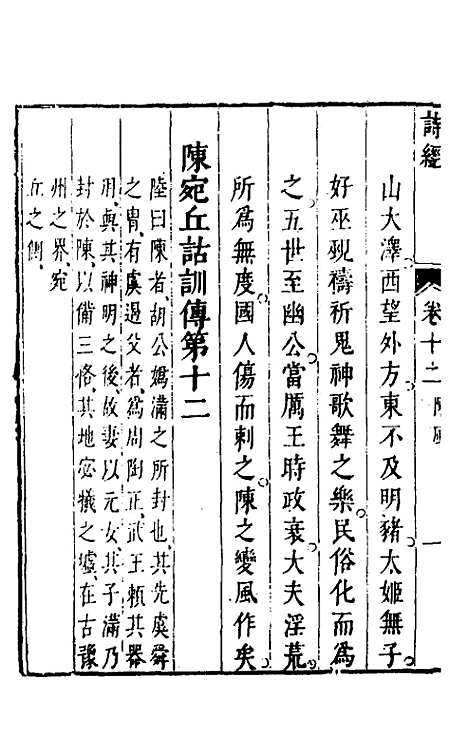 詩經 卷十二 陳風 一
山大澤。西望外方。東不及明豬。太姬無子。
好巫覡禱祈鬼神歌舞之樂。民俗化而為
之。五世至幽公。當厲王時政衰。大夫淫荒。
所為無度。國人傷而刺之。陳之變風作矣。
陳宛丘詁訓傳第十二
陸曰陳者、胡公媯滿之所封也、其先虞舜
之胄、有虞遏父者、為周陶正、武王賴其器
用、與其神明之後、故妻以元女、其子滿乃
封於陳、以備三恪、其地宓犧之墟、在古豫
州之界、宛
丘之側、